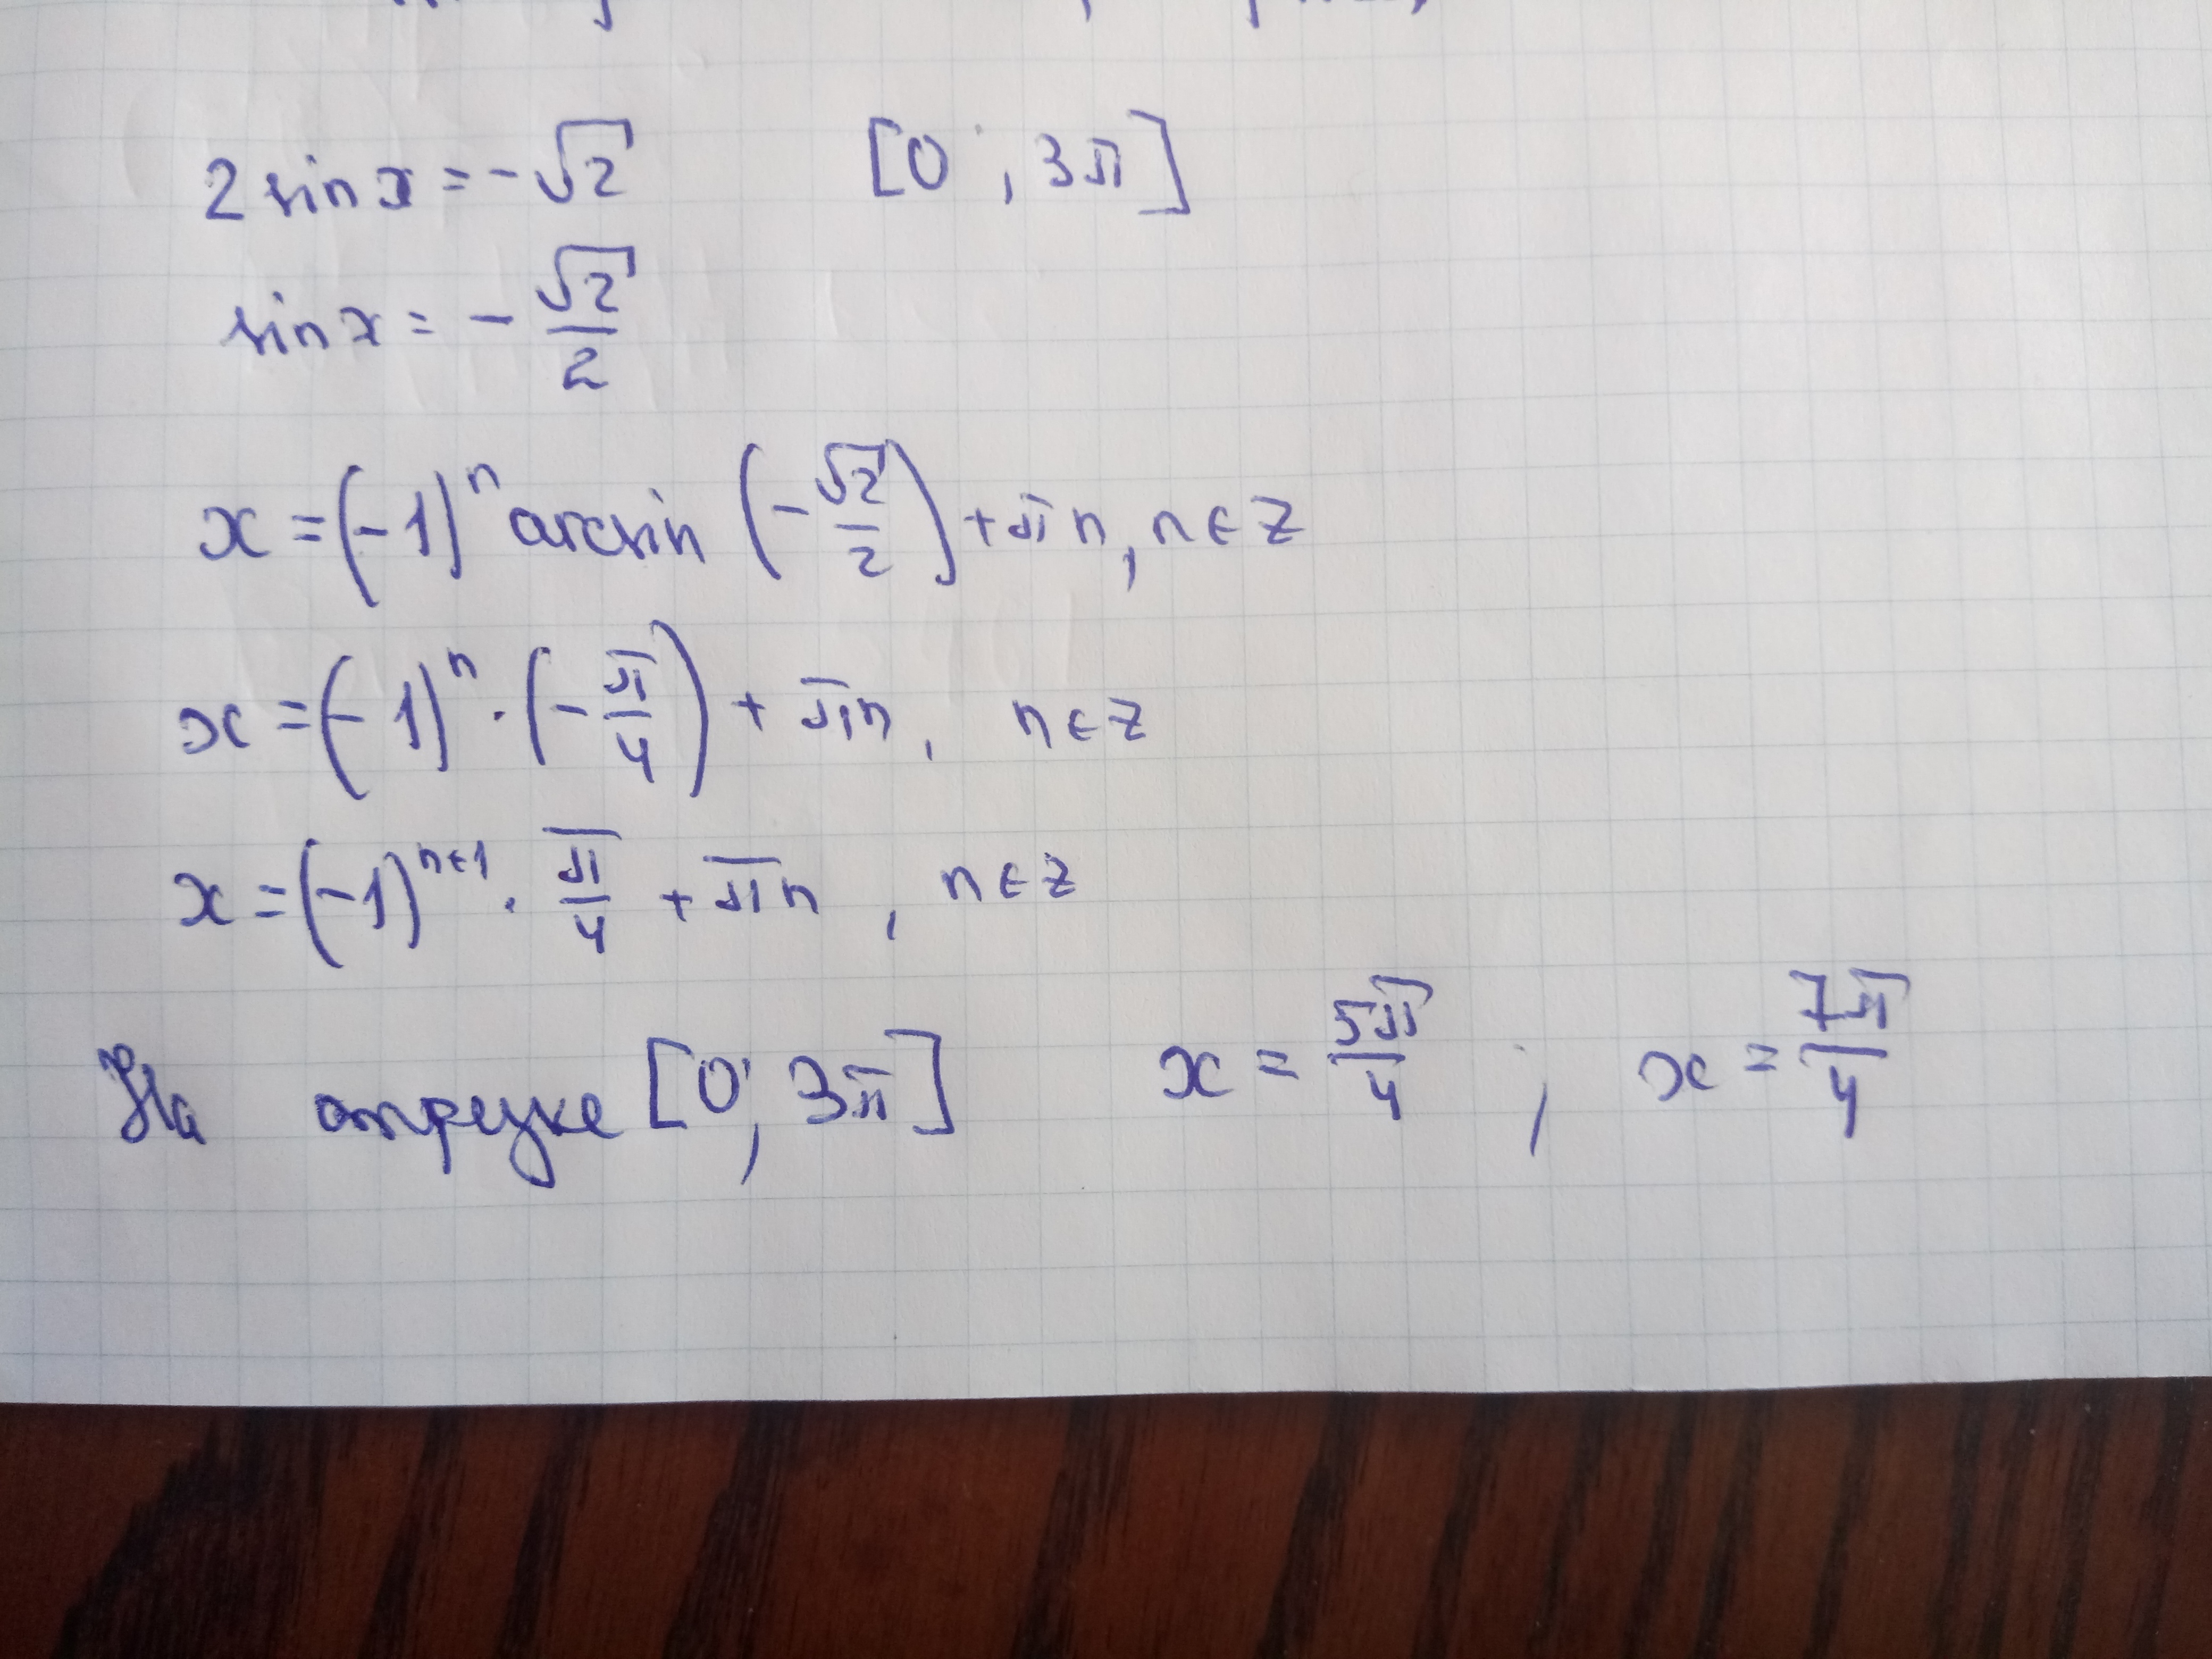 2 sin x = -√2 [0; 3π]
sin x = - √2/2
x = (-1)ⁿ arcsin (- √2/2) + πn, n ∈ Z
x = (-1)ⁿ · (- π/4) + πn, n ∈ Z
x = (-1)ⁿ⁺¹ · π/4 + πn, n ∈ Z
На отрезке [0; 3π] x = 5π/4 ; x = 7π/4